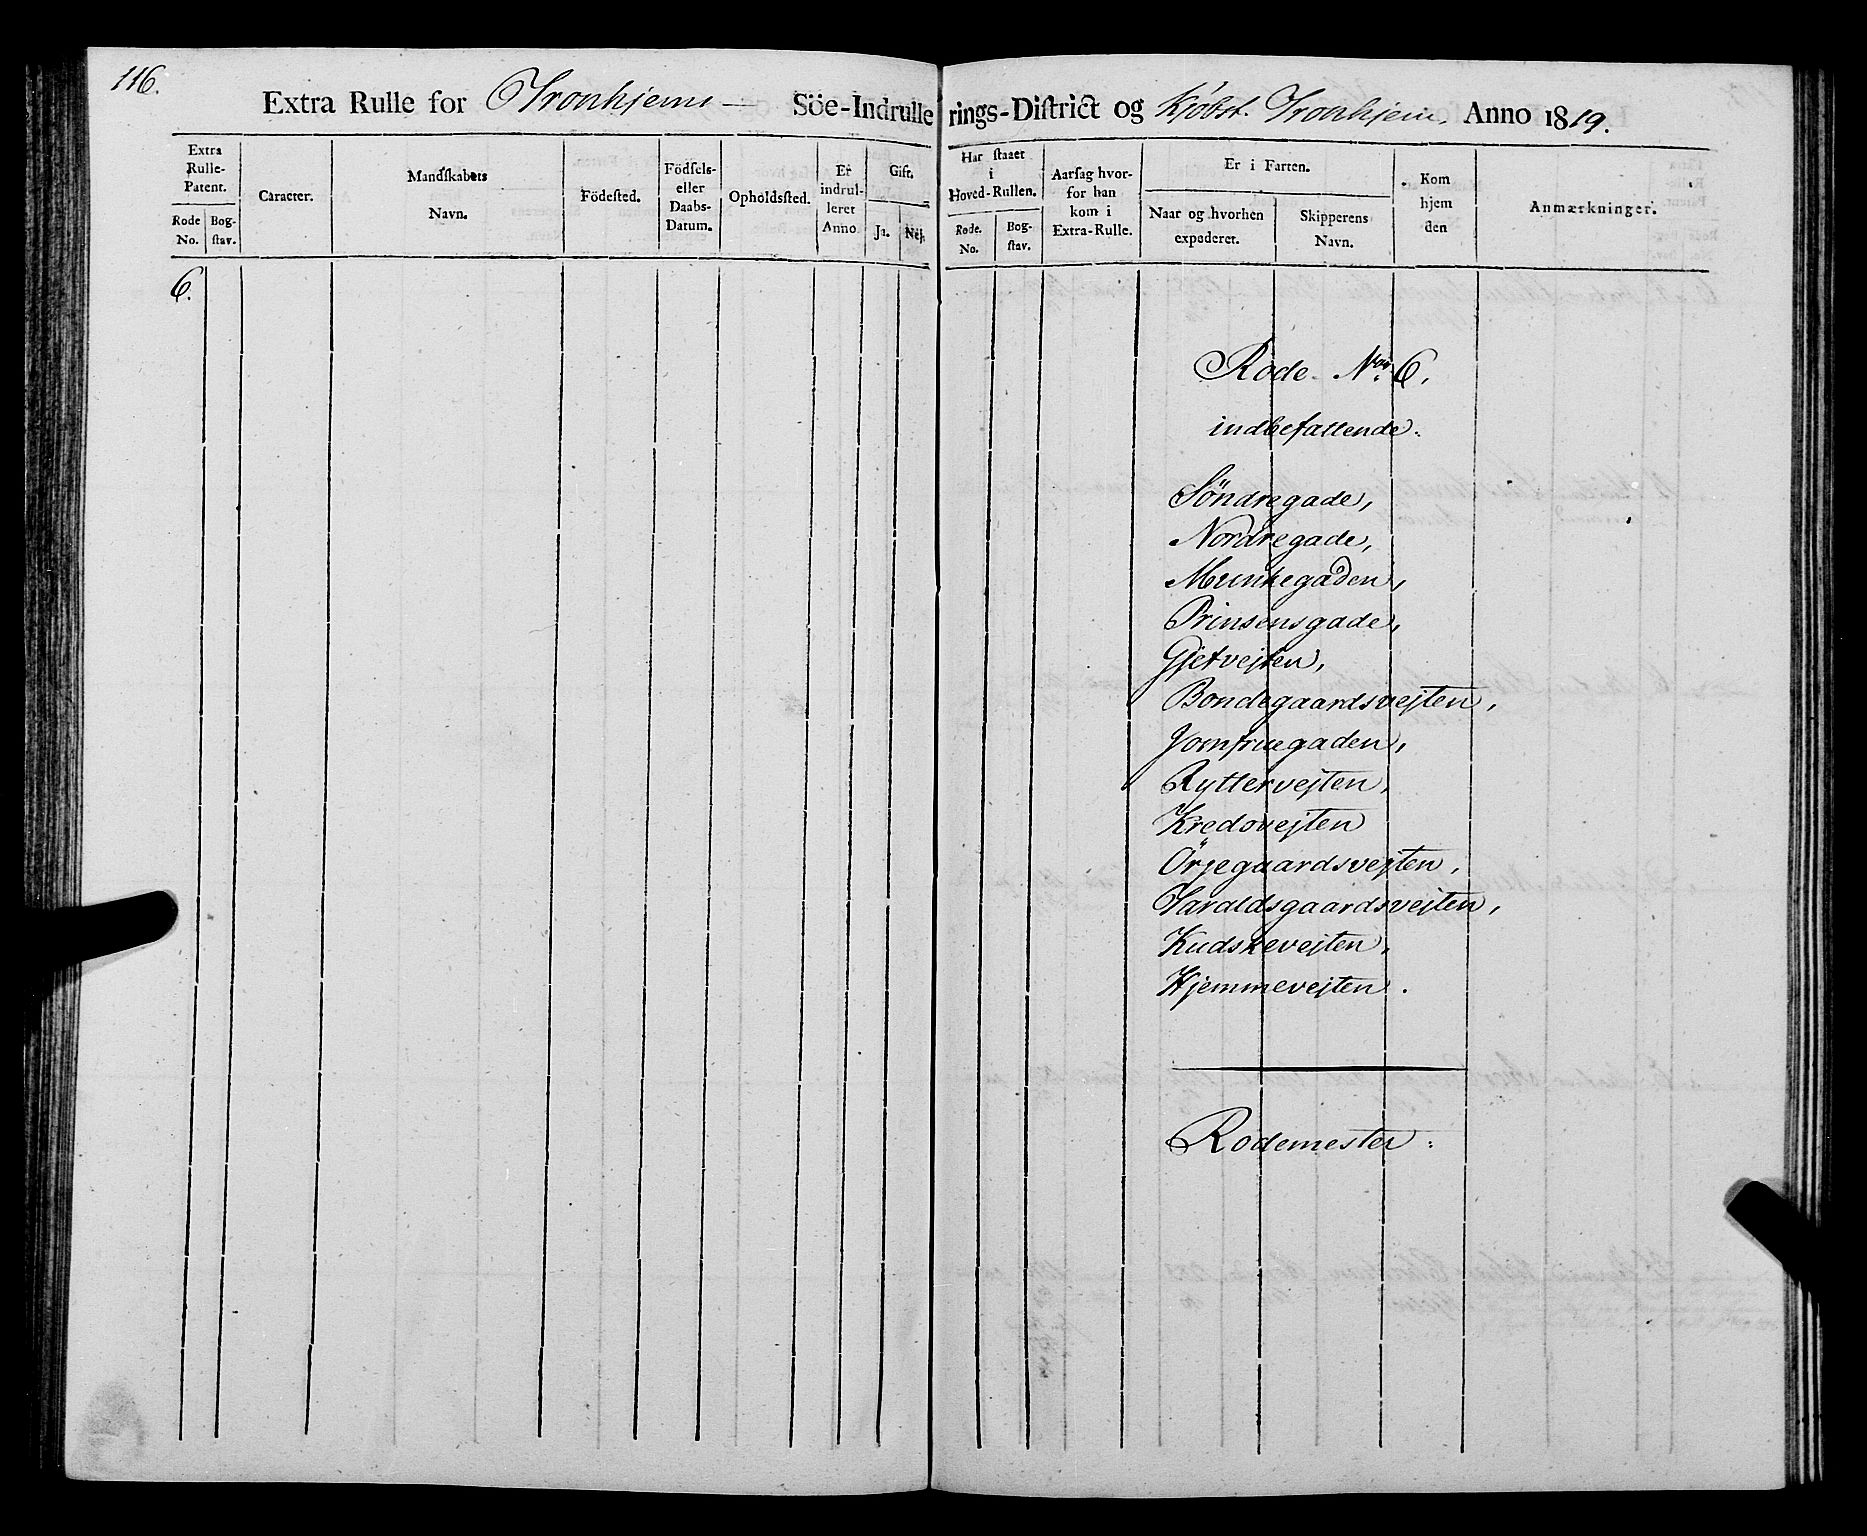 116.
Extra Rulle for Tronhjems Söe-Indrullerings-District og Kjöbst. Tronhjem, Anno 1819.
Extra Rulle-Patent.
Rode No.
Bog-stav.
Caracter.
Mandskabets Navn.
Födested.
Födsels- eller Daabs-Datum.
Opholdssted.
Er indrul-leret Anno.
Gift.
Ja.
Nej.
Har staaet i Hoved-Rullen.
Rode. No.
Bog-stav.
Aarsag hvor-for han kom i Extra-Rulle.
Er i Farten.
Naar og hvorhen expederet.
Skipperens Navn.
Kom hjem den
Anmærkninger.
6.
Rode No. 6.
indbefattende.
Söndregade,
Nordregade,
Munkegaden,
Prinsensgade,
Gjetvejten,
Bondegaardsvejten,
Jomfruegaden,
Ryttervejten,
Kredovejten
Örjegaardsvejten,
Haraldsgaardsvejten,
Kudskevejten,
Hjemmevejten.
Rodemester: